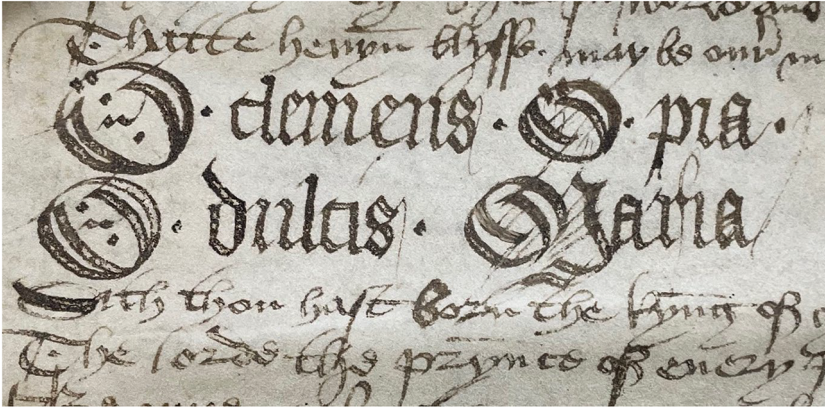 Thatte henyn blysse. may be our
O · clemens · O · pia ·
O · dulcis · Maria
Sith thou hast born the kyng of
The lorde the prynce of euery